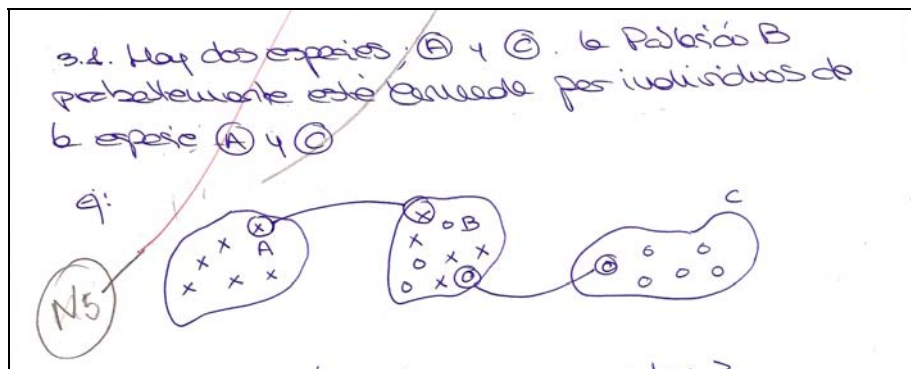 3.1. Hay dos especies, A y C. la Población B
probablemente esté formada por individuos de
la especie A y C
ej:
A
B
C
N5